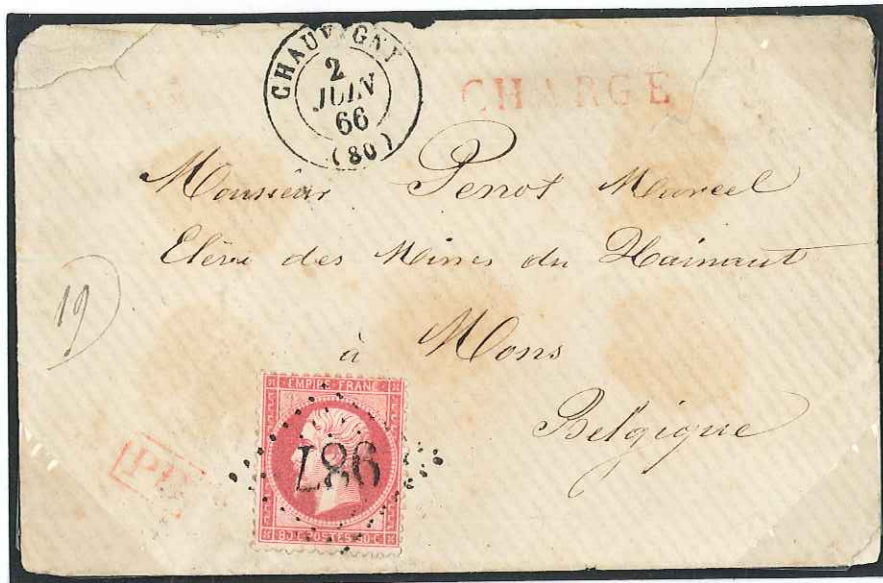 CHAUVIGNY
2
JUIN
66
(80)
CHARGE
Monsieur Penot Marcel
Elève des Mines du Hainaut
à Mons
Belgique
19
EMPIRE FRANC
987
80 C POSTES 80 C
PD